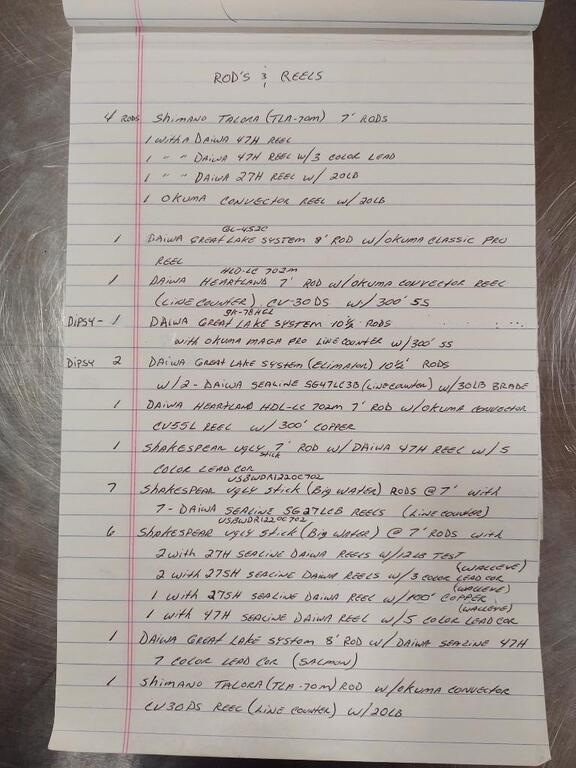 ROD'S & REELS
4 RODS SHIMANO TALORA (TLA-70M) 7' RODS
1 WITH A DAIWA 47H REEL
1 " " DAIWA 47H REEL W/3 COLOR LEAD
1 " " DAIWA 27H REEL W/ 20LB
1 OKUMA CONVECTOR REEL W/ 20LB
GL-452C
1 DAIWA GREAT LAKE SYSTEM 8' ROD W/OKUMA CLASSIC PRO
REEL
HLD-LC 702M
1 DAIWA HEARTLAND 7' ROD W/OKUMA CONVECTOR REEL
(LINE COUNTER) CV-30DS W/300' SS
DIPSY - 1 DAIWA GREAT LAKE SYSTEM 10½ RODS
WITH OKUMA MAGH PRO LINE COUNTER W/300' SS
DIPSY 2 DAIWA GREAT LAKE SYSTEM (ELIMATOR) 10½' RODS
W/2 - DAIWA SEALINE SG47LC3B (LINE COUNTER) W/30LB BRADE
1 DAIWA HEARTLAND HDL-LC 702M 7' ROD W/OKUMA CONVECTOR
CV55L REEL W/ 300' COPPER
1 SHAKESPEAR UGLY STICK 7' ROD W/ DAIWA 47H REEL W/5
COLOR LEAD COR
USBWDR1220C702
7 SHAKESPEAR UGLY STICK (BIG WATER) RODS @ 7' WITH
7 - DAIWA SEALINE SG27LCB REELS (LINE COUNTER)
USBWDR1220C702
6 SHAKESPEAR UGLY STICK (BIG WATER) @ 7' RODS WITH
2 WITH 27H SEALINE DAIWA REELS W/12LB TEST
2 WITH 27SH SEALINE DAIWA REELS W/3 COLOR LEAD COR (WALLEYE)
1 WITH 27SH SEALINE DAIWA REEL W/100' COPPER (WALLEYE)
1 WITH 47H SEALINE DAIWA REEL W/5 COLOR LEAD COR (WALLEYE)
1 DAIWA GREAT LAKE SYSTEM 8' ROD W/DAIWA SEALINE 47H
7 COLOR LEAD COR (SALMON)
1 SHIMANO TALORA (TLA-70M) ROD W/OKUMA CONVECTOR
CV30DS REEL (LINE COUNTER) W/20LB